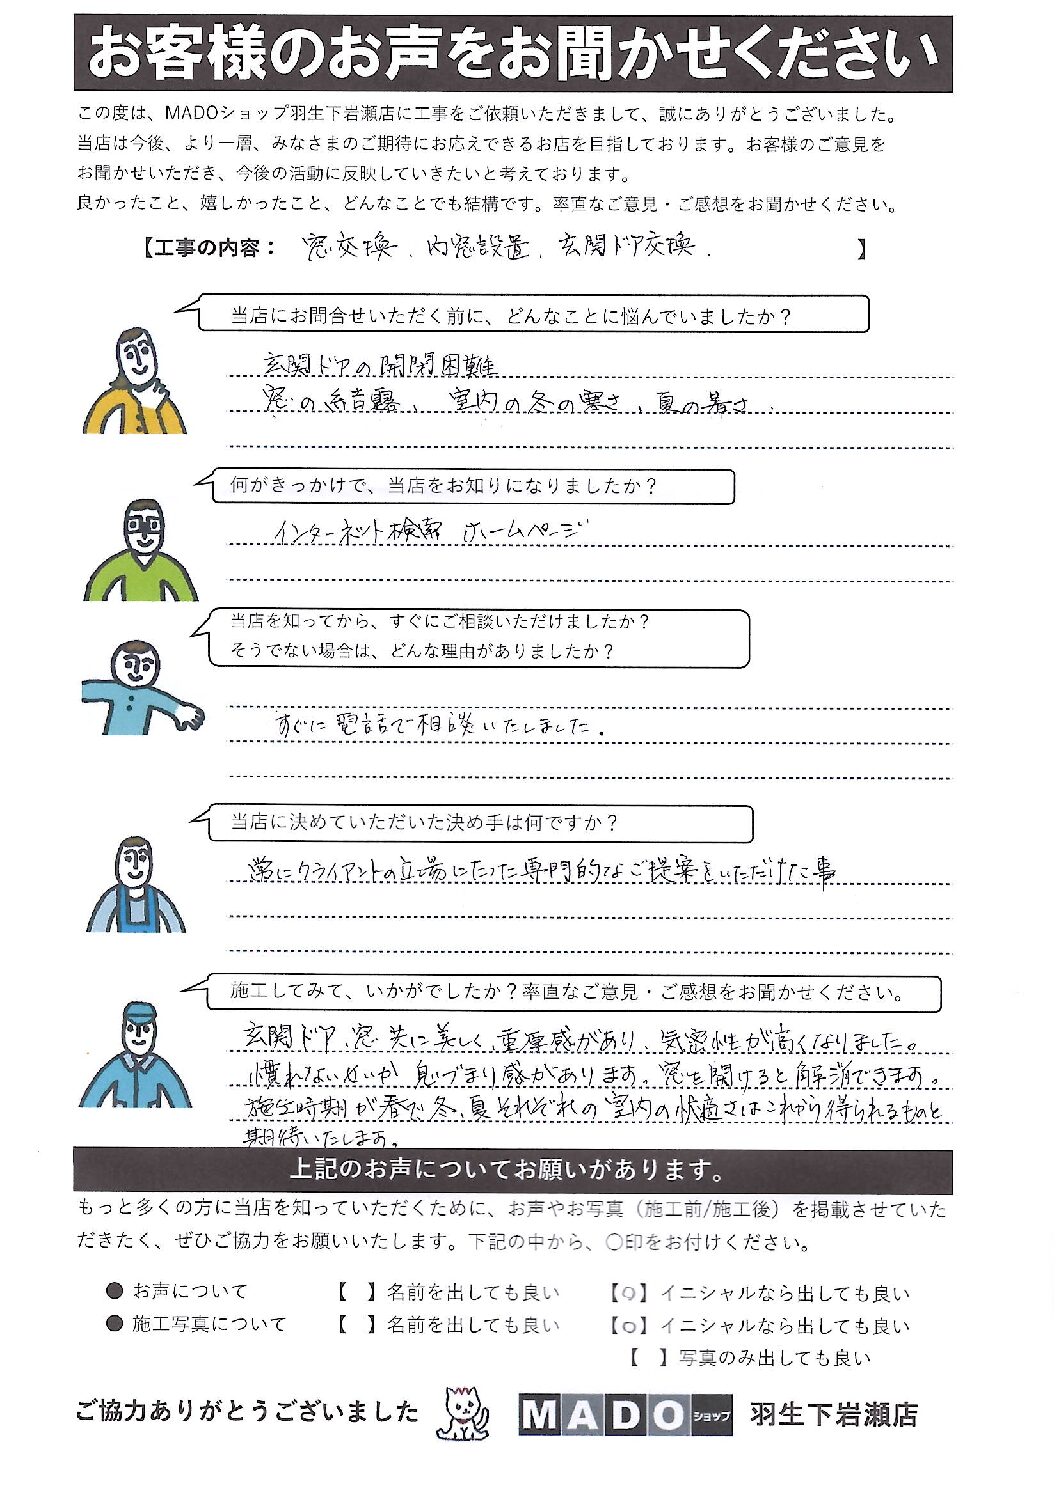 お客様のお声をお聞かせください
この度は、MADOショップ羽生下岩瀬店に工事をご依頼いただきまして、誠にありがとうございました。
当店は今後、より一層、みなさまのご期待にお応えできるお店を目指しております。お客様のご意見を
お聞かせいただき、今後の活動に反映していきたいと考えております。
良かったこと、嬉しかったこと、どんなことでも結構です。率直なご意見・ご感想をお聞かせください。
【工事の内容： 窓交換、内窓設置、玄関ドア交換. 】
当店にお問合せいただく前に、どんなことに悩んでいましたか？
玄関ドアの開閉困難
窓の結露、室内の冬の寒さ、夏の暑さ.
何がきっかけで、当店をお知りになりましたか？
インターネット検索 ホームページ
当店を知ってから、すぐにご相談いただけましたか？
そうでない場合は、どんな理由がありましたか？
すぐに電話で相談いたしました.
当店に決めていただいた決め手は何ですか？
常にクライアントの立場にたった専門的なご提案をいただけた事
施工してみて、いかがでしたか？率直なご意見・ご感想をお聞かせください。
玄関ドア、窓共に美しく、重厚感があり、気密性が高くなりました。
慣れないせいか 息づまり感があります。窓を開けると解消できます。
施工時期が春で冬、夏それぞれの室内の快適さはこれから得られるものと
期待いたします。
上記のお声についてお願いがあります。
もっと多くの方に当店を知っていただくために、お声やお写真（施工前/施工後）を掲載させていた
だきたく、ぜひご協力をお願いいたします。下記の中から、〇印をお付けください。
● お声について 【 】名前を出しても良い 【○】イニシャルなら出しても良い
● 施工写真について 【 】名前を出しても良い 【○】イニシャルなら出しても良い
【 】写真のみ出しても良い
ご協力ありがとうございました MADOショップ 羽生下岩瀬店